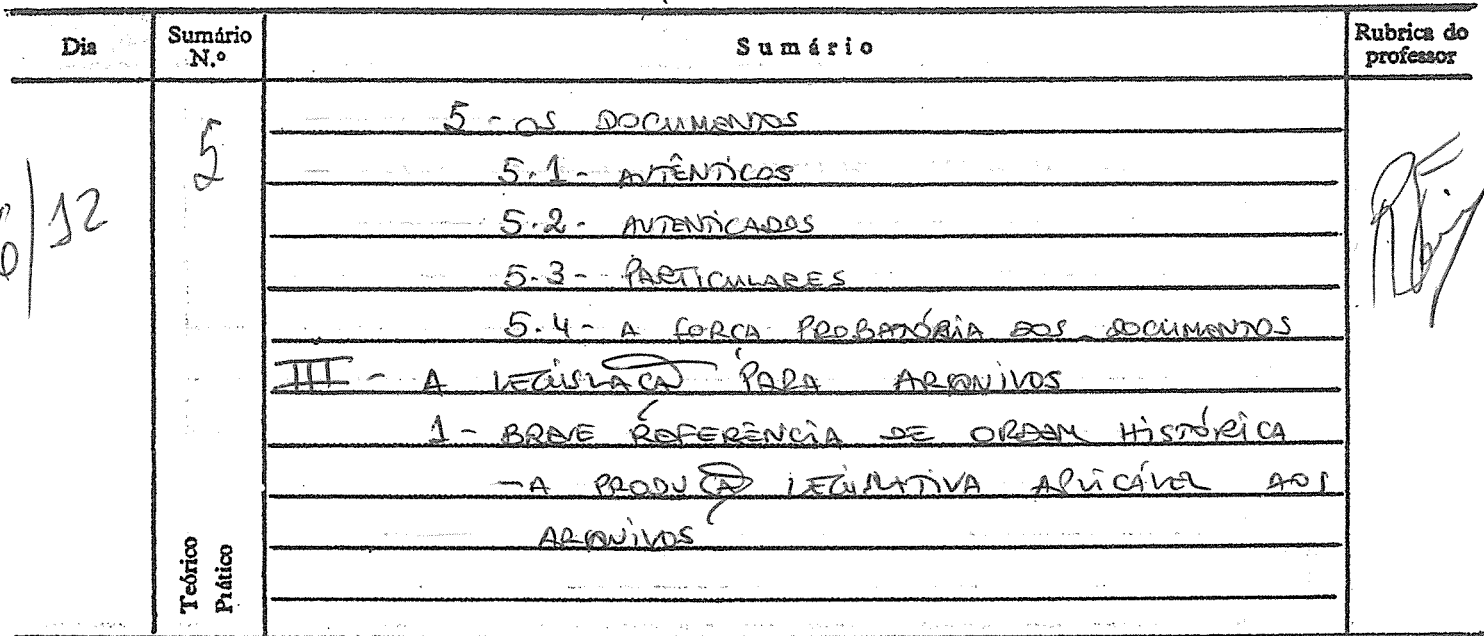 Dia
Sumário N.º
Sumário
Rubrica do professor
/12
5
5 - OS DOCUMENTOS
5.1 - AUTÊNTICOS
5.2 - AUTENTICADOS
5.3 - PARTICULARES
5.4 - A FORÇA PROBATÓRIA DOS DOCUMENTOS
III - A LEGISLAÇÃO PARA ARQUIVOS
1 - BREVE REFERÊNCIA DE ORDEM HISTÓRICA
- A PRODUÇÃO LEGISLATIVA APLICÁVEL AOS
ARQUIVOS
Teórico
Prático